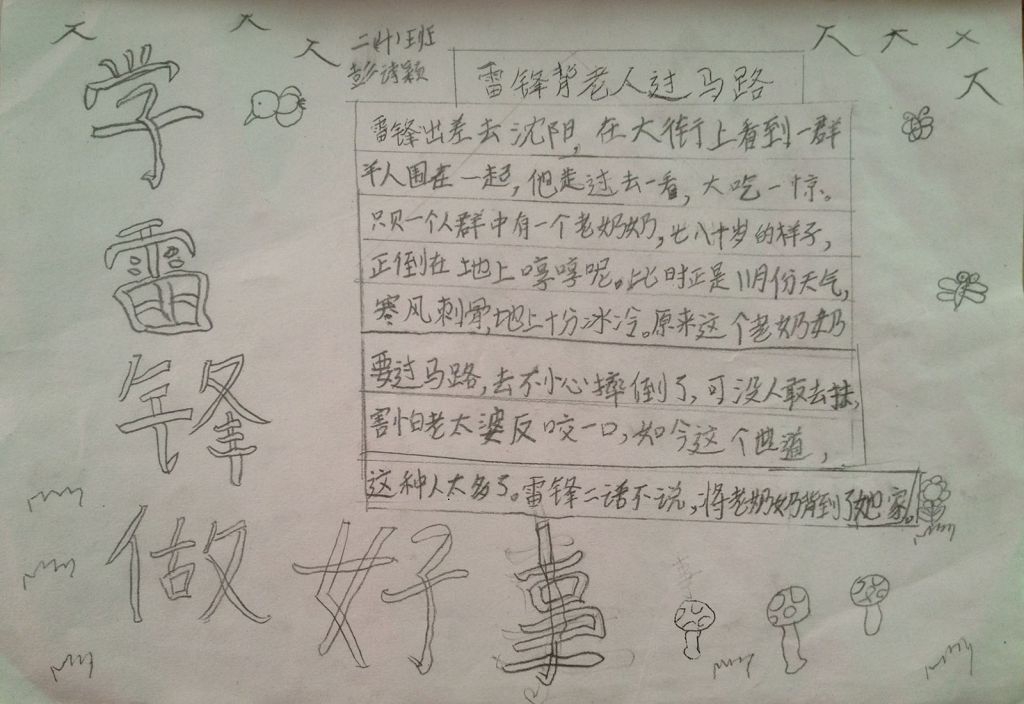 学
雷
锋
做好事
二(1)班
彭诗颖
雷锋背老人过马路
雷锋出差去沈阳,在大街上看到一群
半人围在一起,他走过去一看,大吃一惊。
只见一个人群中有一个老奶奶,七八十岁的样子,
正倒在地上哼哼呢。此时正是11月份天气,
寒风刺骨,地上十分冰冷。原来这个老奶奶
要过马路,去不小心摔倒了,可没人敢去扶,
害怕老太婆反咬一口,如今这个世道,
这种人太多了。雷锋二话不说,将老奶奶背到了她家。